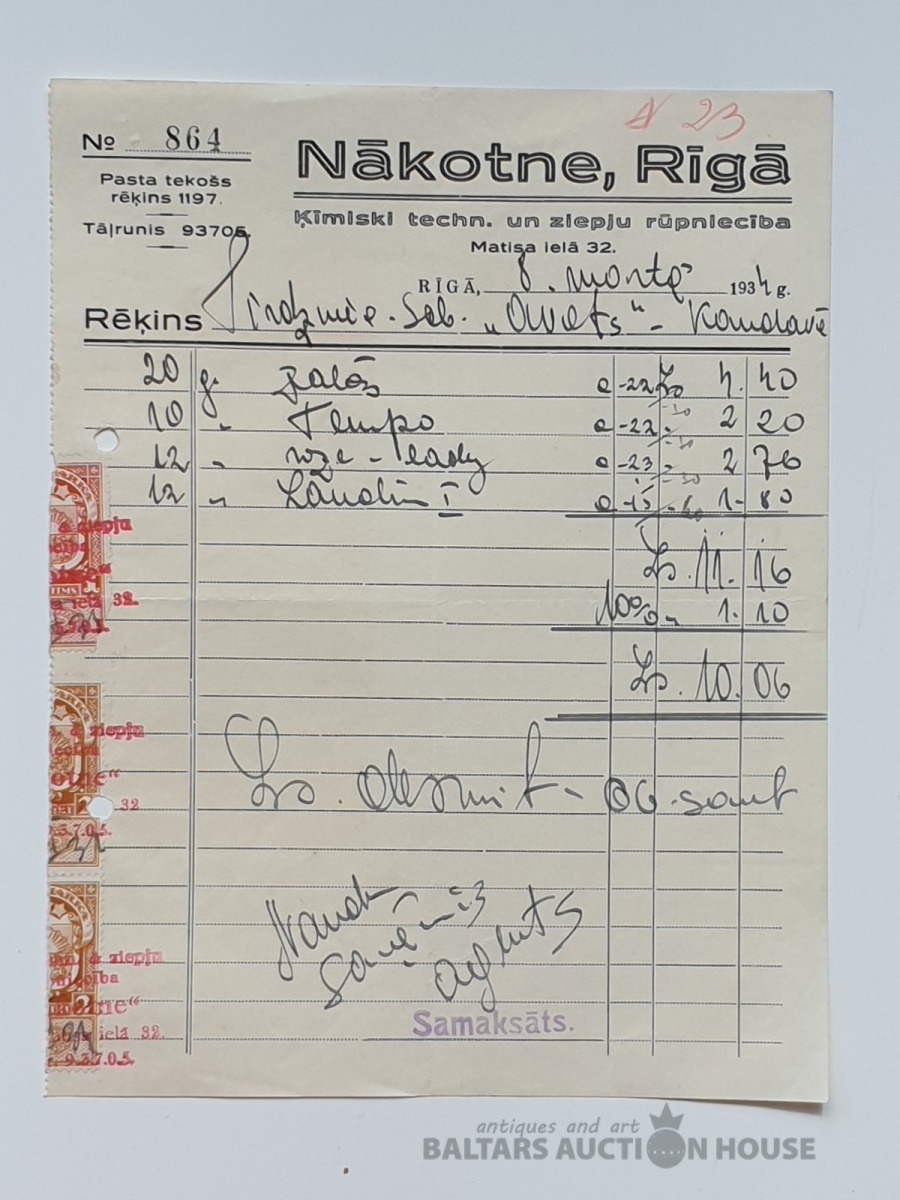 N 23
No 864
Nākotne, Rīgā
Pasta tekošs
rēķins 1197.
Ķīmiski techn. un ziepju rūpniecība
Tāļrunis 93705.
Matisa ielā 32.
RĪGĀ, 8. martā 1934 g.
Rēķins Sab. - Kandavā
20 g. a -22 Ls 4.40
10 " Tempo a -22 - 2 20
12 " roze - lady a -23 - 2 76
12 " I a -15 - 1-80
Ls. 11. 16
10% - 1. 10
Ls. 10. 06
Ls. desmit - 06 sant
Naudu
saņēmis
agents
Samaksāts.
& ziepju
ielā 32.
& ziepju
32
.3.7.0.5.
& ziepju
ielā 32.
9.3.7.0.5.
antiques and art
BALTARS AUCTION HOUSE